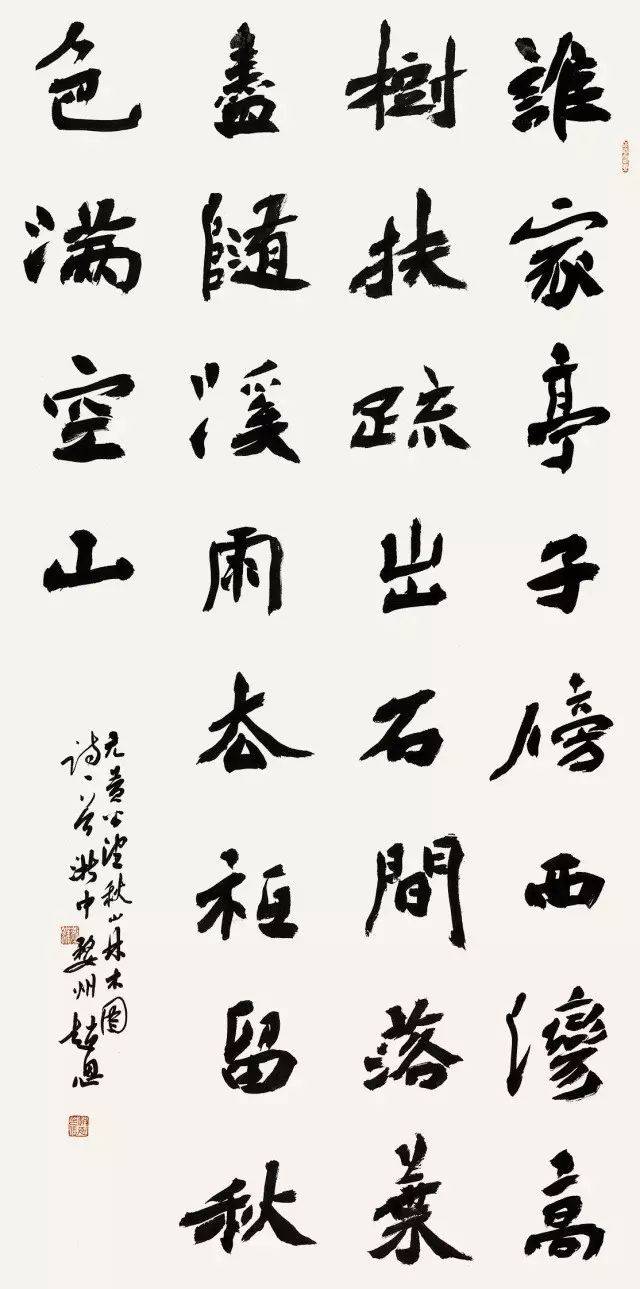 誰家亭子傍西灣高
樹扶疏出石間落葉
盡隨溪雨去祇留秋
色滿空山
元黄公望秋山林木图
诗一首浙中婺州赵恩